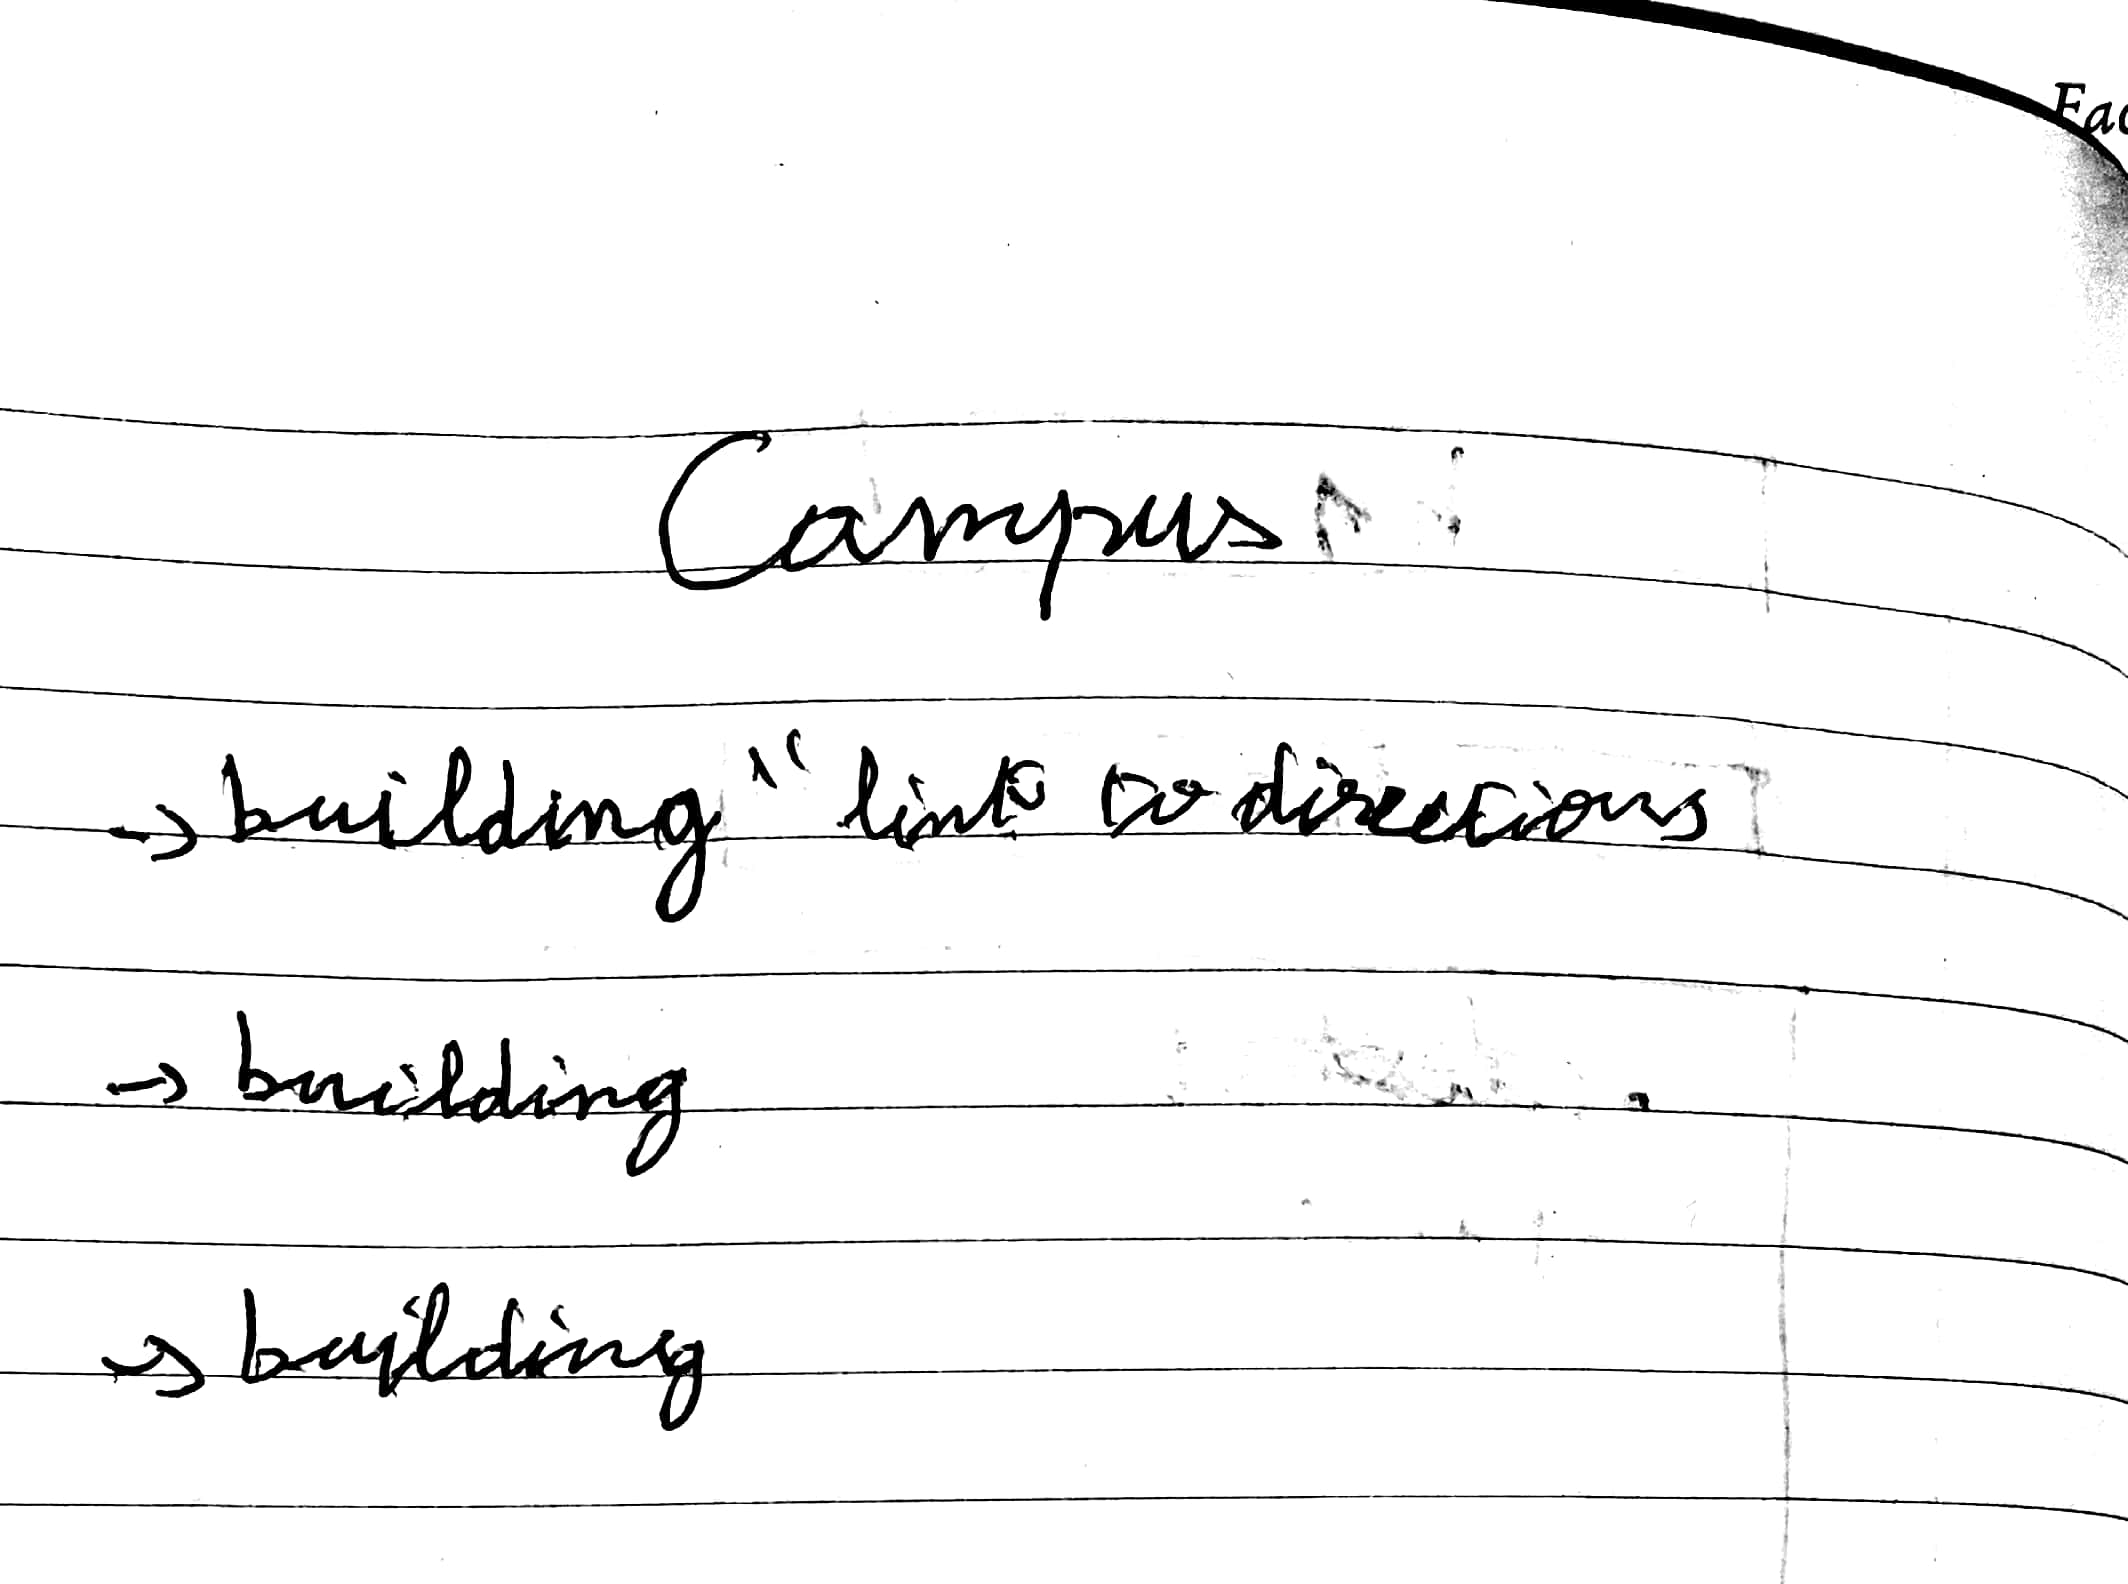 Campus
→ building " link to directions
→ building
→ building